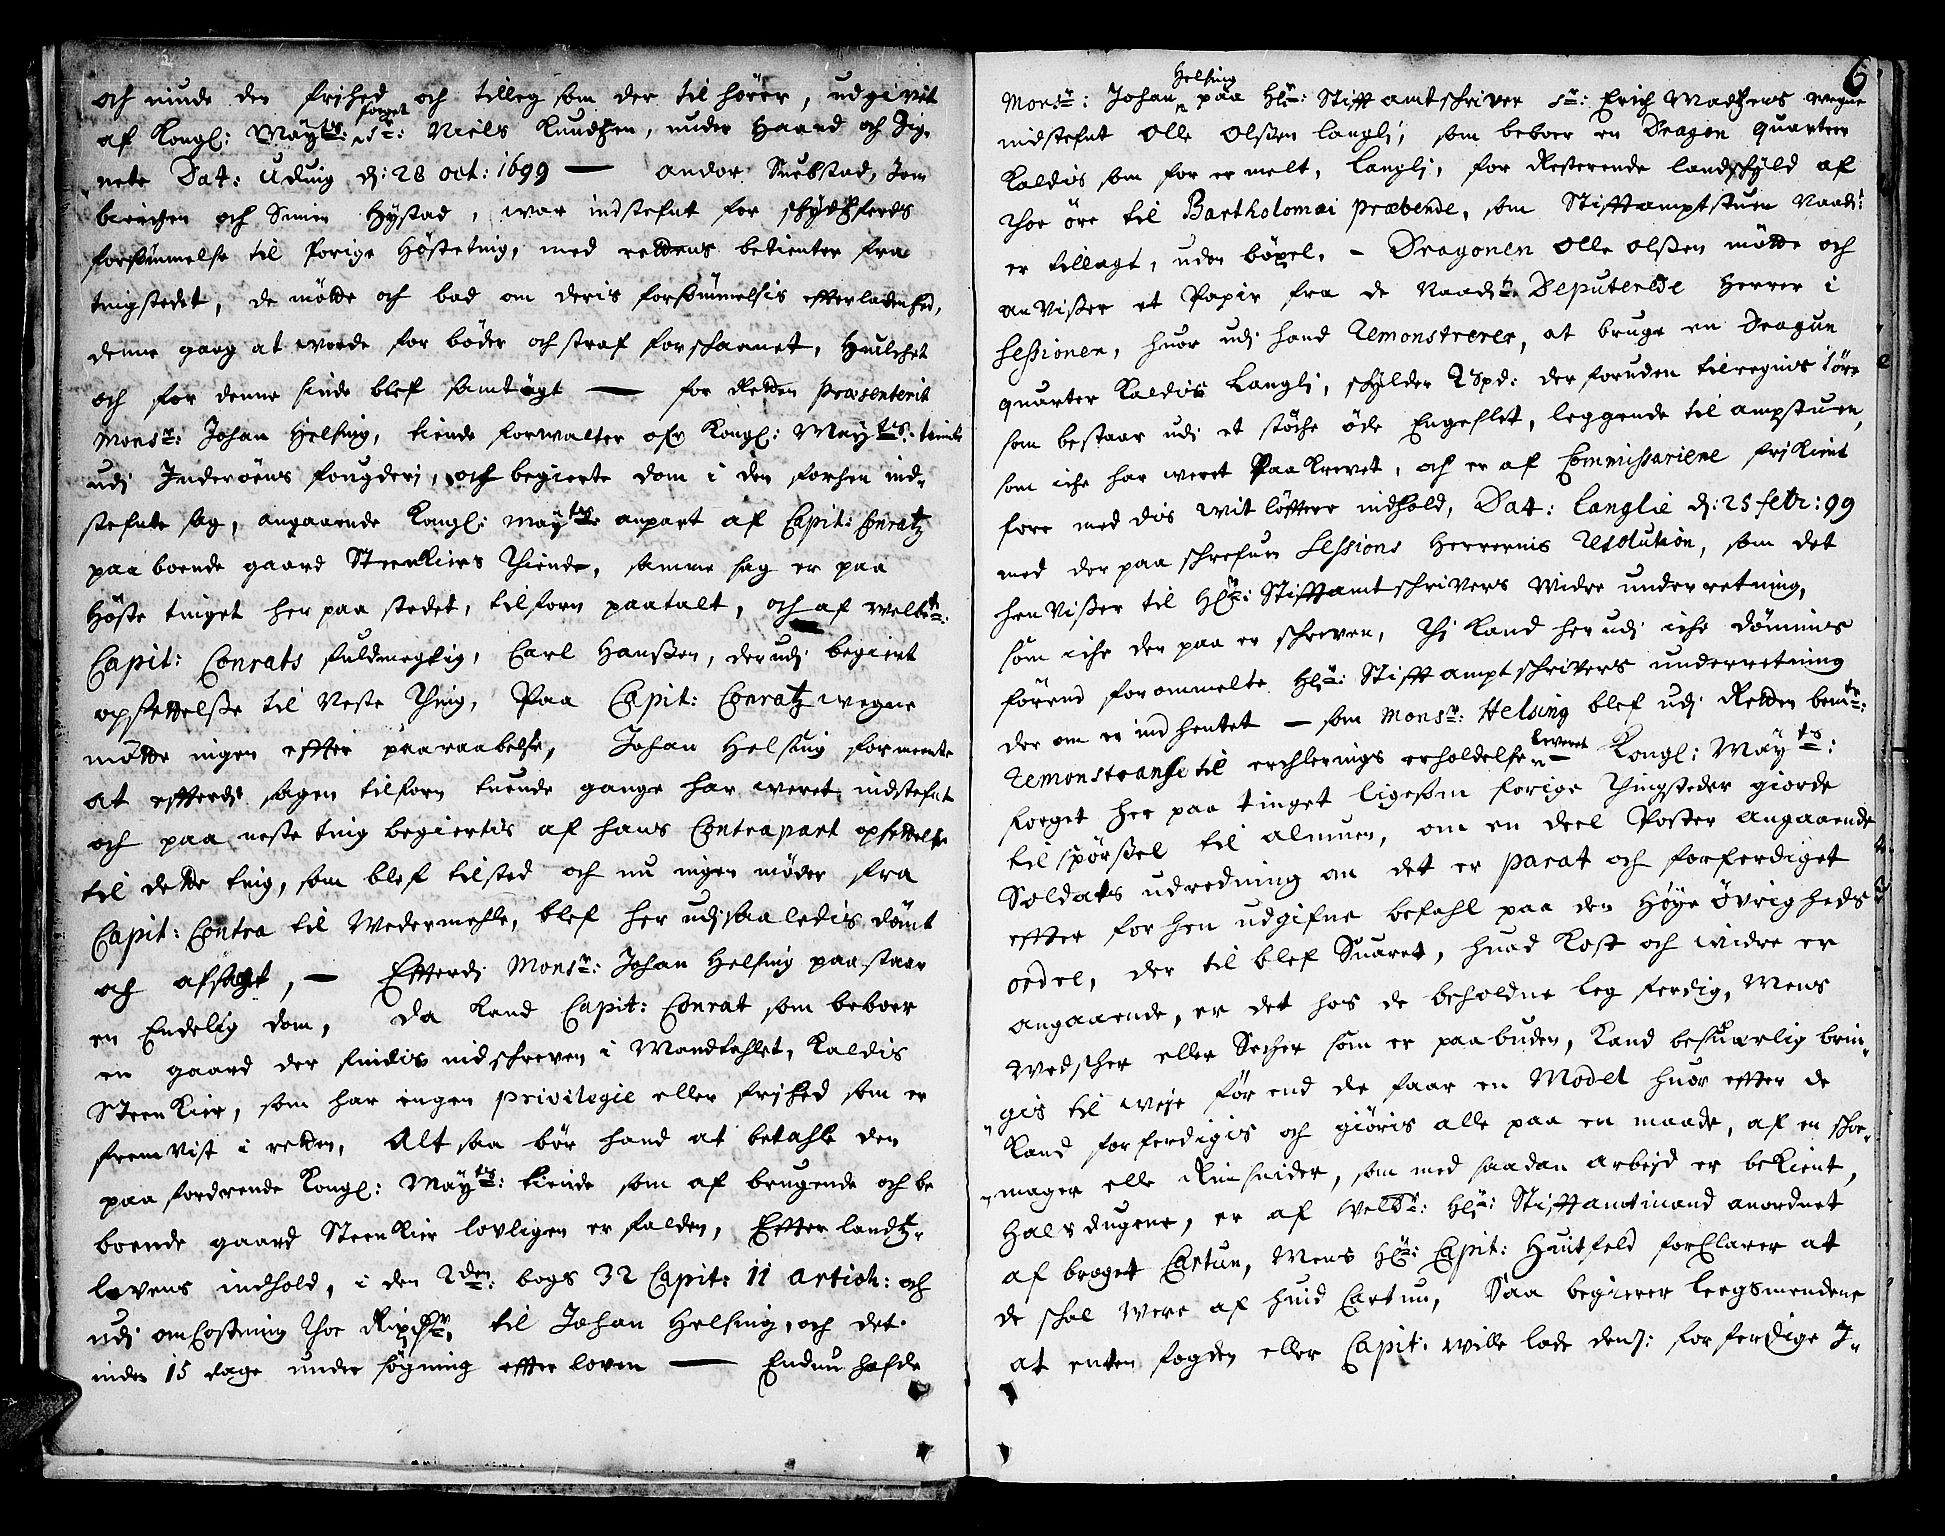 och niude den frjhed och tilleg som der til hörer, udgivet
af Kongl: Maÿtz: foget Sr: Niels Knudsen, under Haand och Zig-
nete Dat: Uduig d: 28 oct: 1699 — Andor Suebstad, Jon
biericher och Simen Hÿstad, war indstefnt for schÿdsferds
forsömmelse til forige Hösteting, med rettens betienter fra
tingstedet, de mötte och bad om deris forsömmelsis efterladenhed,
denne gang at worde for böder och straf forschaanet, Huilchet
och for denne sinde blef samtÿgt — for Retten præsenterit
Monsr: Johan Helsing, tiende forwalter ofr Kongl: Maÿts: tiende
udj Inderöens fougderj, och begierte dom i den forhen ind-
stefnte sag, angaaende Kongl: Maÿts: anpart af Capit: Conratz
paa boende gaard Steenkiers Thiende, samme sag er paa
Höste tinget her paa stedet, tilforn paatalt, och af welbte:
Capit: Conrats fuldmegtig, Carl Hanssen, der udj begiert
opsettelsse til Neste Thing, Paa Capit: Conratz wegne
mötte ingen effter paaraabelse, Johan Helsing formeente
at efterdj sagen tilforn tuende gange har weret indstefnt
och paa neste ting begiertis af hans Contrapart opsettelse
til dette ting, som blef tilsted och nu ingen möder fra
Capit: Contra til wedermehle, blef her udj saaledis dömt
och afsagt, — Efterdj Monsr: Johan Helsing paastaar
en Endelig dom, Da kand Capit: Conrat som beboer
en gaard der findis indschreven i Mandtahlet, kaldis
Steenkier, som har ingen privilegie eller frjhed som er
fremvist i retten, Alt saa bör hand at betahle den
paa fordrende Kongl: Maÿts: tiende som af brugende och be
boende gaard Steenkier lovligen er falden, Efter landtz-
lovens indhold, i den 2den: bogs 32 Capit: 11 Artich: och
udj omCostning thoe Rixdr, til Johan Helsing, och det
inden 15 dage under sögning effter loven — Endnu hafde
6
Monsr: Johan Helsing paa Hr: Stifft amtschriver Sr: Erich Madsens wegne
indstefnt Olle Olssen langlj, som beboer en Dragon quarteer
kaldis som for ermelt, langlj, for Resterende landschÿld af
thoe öre til Bartholomæi præbende, som Stifftamptstuen Naadt:
er tillagt, uden böxel, - Dragonen Olle olssen mötte och
anvisser et Papir fra de Naadr: Deputerede Herrer i
Sessionen, huor udj hand Remonstrerer, at bruge en Dragun
quarter kaldis Langlj, schÿlder 2 spd: der foruden tilregnis 1 öre
som bestaar udj et stöche öde Engeslet, leggende til ampstuen,
som iche har weret Paakrevet, och er af Commissariene frj kient
fore med dis wit löftere indhold, Dat: Langlie d: 25 febr: 99
med der paa schrefven Sessions Herrernis Resolution, som det
hen visser til Hr: Stifftamtschrivers widre underretning,
som iche der paa er schreven, Thj kand her udj iche dömmis
förend forommelte Hr: Stifft amptschrivers underretning
der om er ind hentet — som Monsr: Helsing blef udj Retten bemte:
Remonstransi til erchlerings erholdelse leveret — Kongl: Maÿts:
foget her paa tinget ligesom forige Thingsteder giorde
tilspörssel til Almuen, om en deel Poster angaaende
Soldats udredning om det er parat och forferdiget
effter for hen udgifne befahl paa den Höÿe övrigheds
ordre, der til blef Suaret, huad kost och widre er
angaaende, er det hos de beholdne leg ferdig, Mens
wedscher eller Secher som er paabuden, kand besuærlig brin-
gis til weje förend de faar en Model huor effter de
kand forferdigis och giöris alle paa en maade, af en schoe-
mager elle Rimsnider, som med saadan arbejd er bekient,
Halsdugene, er af welbr: Hr: Stifftamtmand anordnet
af broget Cartun, Mens Hr: Capit: Huitfeld forclarer at
de schal were af huid Cartun, Saa begierer leegsmendene
at enten fogden eller Capit: wille lade dem: forferdige J-